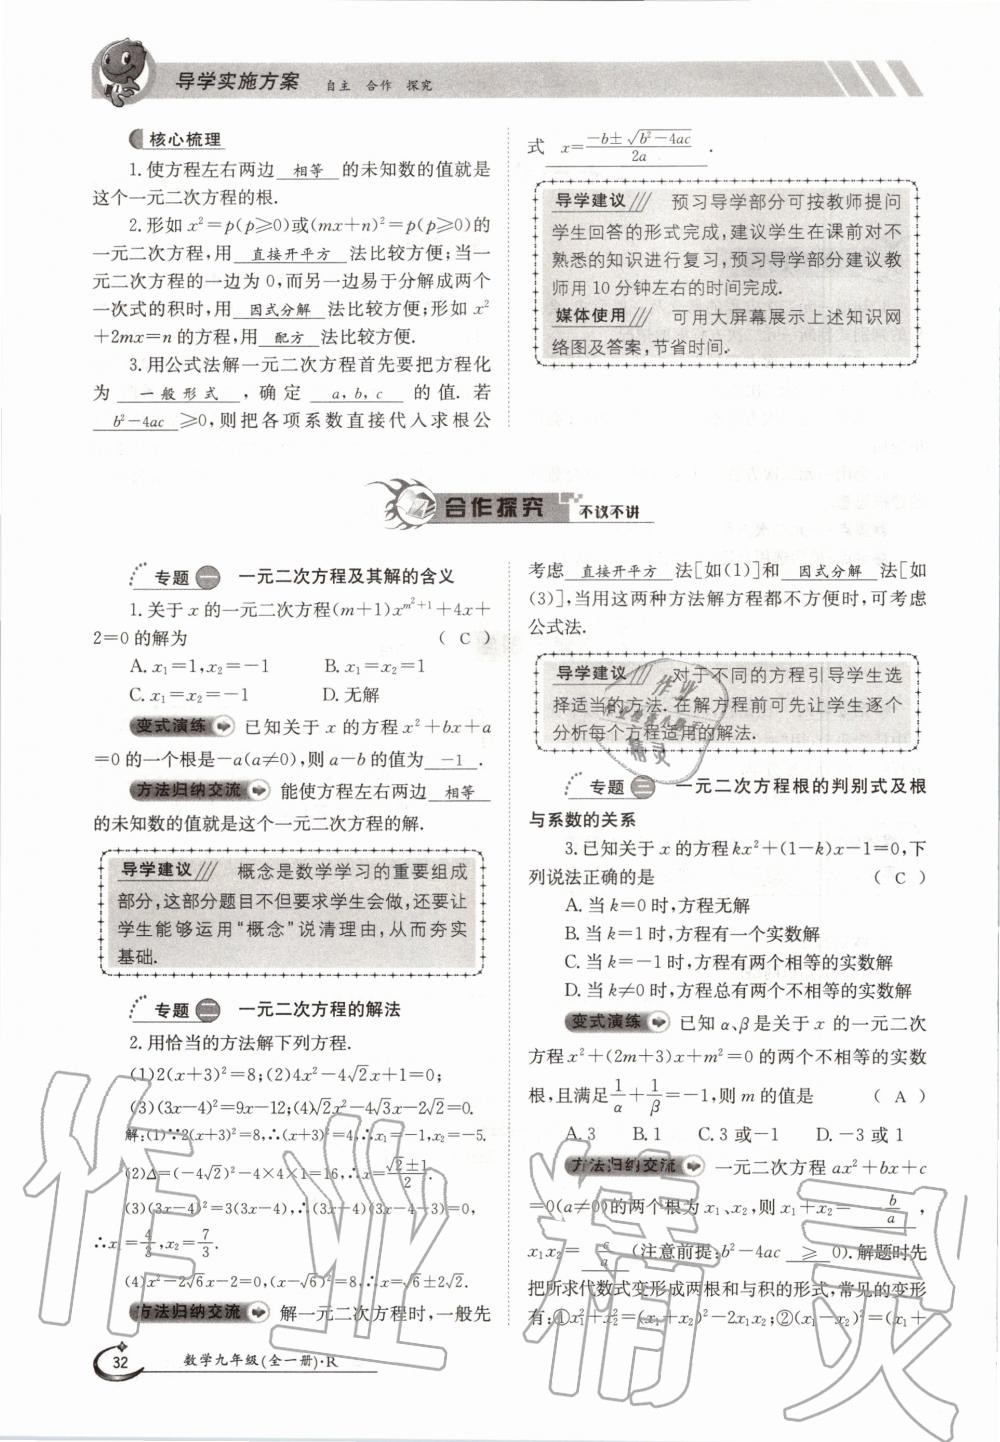 导学实施方案 自主 合作 探究
核心梳理
1.使方程左右两边 相等 的未知数的值就是
这个一元二次方程的根.
2.形如 x²=p(p≥0)或(mx+n)²=p(p≥0)的
一元二次方程,用 直接开平方 法比较方便;当一
元二次方程的一边为 0,而另一边易于分解成两个
一次式的积时,用 因式分解 法比较方便;形如 x²
+2mx=n 的方程,用 配方 法比较方便.
3.用公式法解一元二次方程首先要把方程化
为 一般形式 ,确定 a,b,c 的值.若
b²-4ac ≥0,则把各项系数直接代入求根公
式 x=(-b±√(b²-4ac))/2a .
导学建议/// 预习导学部分可按教师提问
学生回答的形式完成,建议学生在课前对不
熟悉的知识进行复习,预习导学部分建议教
师用 10 分钟左右的时间完成.
媒体使用/// 可用大屏幕展示上述知识网
络图及答案,节省时间.
合作探究 不议不讲
专题一 一元二次方程及其解的含义
1.关于 x 的一元二次方程(m+1)x^(m²+1)+4x+
2=0 的解为 ( C )
A.x₁=1,x₂=-1 B.x₁=x₂=1
C.x₁=x₂=-1 D.无解
变式演练 已知关于 x 的方程 x²+bx+a
=0 的一个根是-a(a≠0),则 a-b 的值为 -1 .
方法归纳交流 能使方程左右两边 相等
的未知数的值就是这个一元二次方程的解.
导学建议/// 概念是数学学习的重要组成
部分,这部分题目不但要求学生会做,还要让
学生能够运用“概念”说清理由,从而夯实
基础.
专题二 一元二次方程的解法
2.用恰当的方法解下列方程.
(1)2(x+3)²=8;(2)4x²-4√2x+1=0;
(3)(3x-4)²=9x-12;(4)√2x²-4√3x-2√2=0.
解:(1)∵2(x+3)²=8,∴(x+3)²=4,∴x₁=-1,x₂=-5.
(2)Δ=(-4√2)²-4×4×1=16,∴x=(√2±1)/2.
(3)(3x-4)²=3(3x-4),∴(3x-4)(3x-4-3)=0,
∴x₁=4/3,x₂=7/3.
(4)x²-2√6x-2=0,(x-√6)²=8,∴x=√6±2√2.
方法归纳交流 解一元二次方程时,一般先
考虑 直接开平方 法[如(1)]和 因式分解 法[如
(3)],当用这两种方法解方程都不方便时,可考虑
公式法.
导学建议/// 对于不同的方程引导学生选
择适当的方法.在解方程前可先让学生逐个
分析每个方程适用的解法.
专题三 一元二次方程根的判别式及根
与系数的关系
3.已知关于 x 的方程 kx²+(1-k)x-1=0,下
列说法正确的是 ( C )
A.当 k=0 时,方程无解
B.当 k=1 时,方程有一个实数解
C.当 k=-1 时,方程有两个相等的实数解
D.当 k≠0 时,方程总有两个不相等的实数解
变式演练 已知 α、β 是关于 x 的一元二次
方程 x²+(2m+3)x+m²=0 的两个不相等的实数
根,且满足 1/α+1/β=-1,则 m 的值是 ( A )
A.3 B.1 C.3 或-1 D.-3 或 1
方法归纳交流 一元二次方程 ax²+bx+c
=0(a≠0)的两个根为 x₁、x₂,则 x₁+x₂= -b/a ,
x₁x₂= c/a (注意前提:b²-4ac ≥ 0).解题时先
把所求代数式变形成两根和与积的形式,常见的变形
有:①x₁²+x₂²=(x₁+x₂)²-2x₁x₂;②(x₁-x₂)²=(x₁+
32 数学九年级(全一册)·R
作业精灵